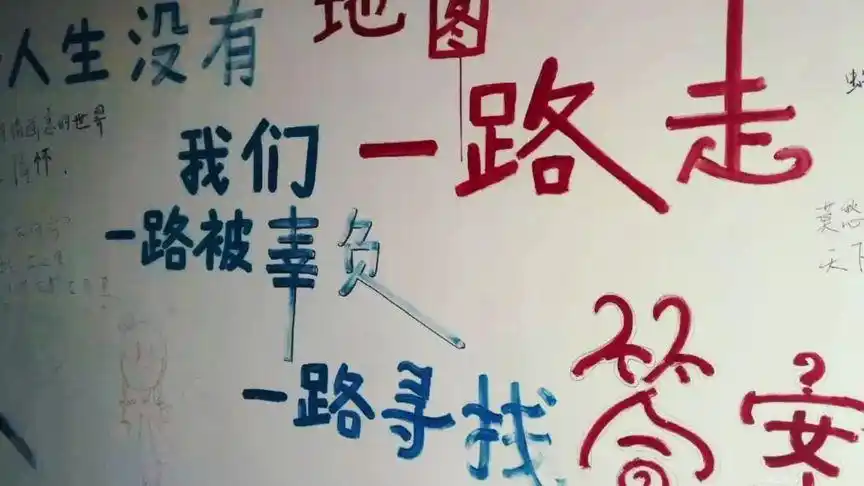 人生没有地图
我们一路走
一路被辜负
一路寻找答案
的世界
怀.
天下